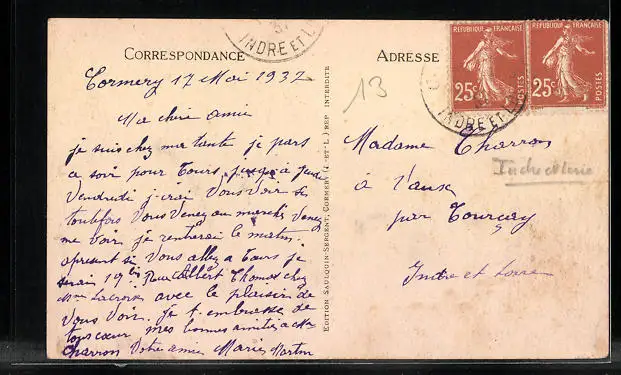 CORRESPONDANCE
ADRESSE
INDRE ET L
RÉPUBLIQUE FRANÇAISE
25c
POSTES
RÉPUBLIQUE FRANÇAISE
25c
POSTES
INDRE ET L
13
Cormery 17 Mai 1932
Ma chère amie
je suis chez ma tante je pars
a soir pour Tours jusqu'à jeudi
Vendredi j irai Vous Voir si
toutefois Vous Venez au marché Venez
me Voir je rentrerai le matin.
apresent si Vous allez a Tours je
serai 19 bis Rue Albert Thomas chez
Mme Lacroix avec le plaisir de
Vous Voir. Je t. embrasse de
tous cœur mes bonnes amitiés a Mr
Charron Votre amie Marie Martin
EDITION SAULQUIN-SERGENT, CORMERY (I.-ET-L.) REP. INTERDITE
Madame Charron
Indre et Loire
à
par Tauxigny
Indre et Loire